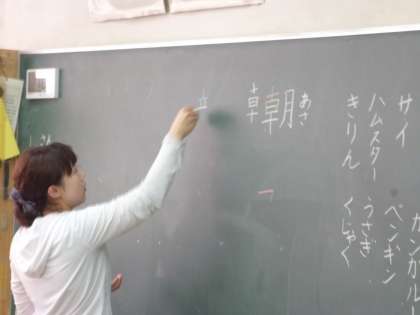 サイ
ハムスター
きりん
カンガルー
ペンギン
うさぎ
くじゃく
あさ
朝